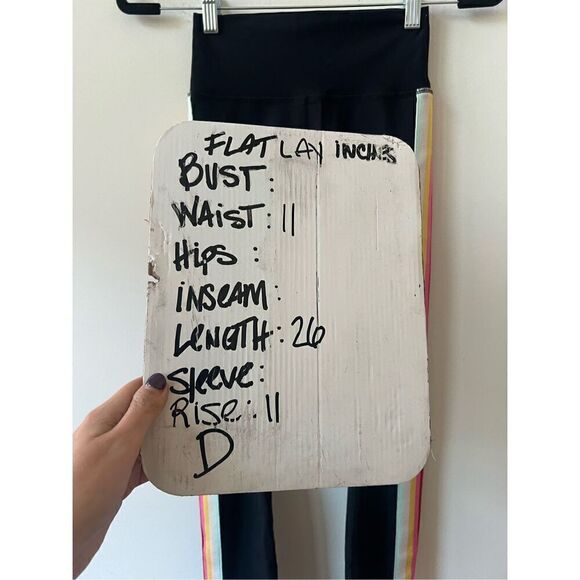 FLAT LAY INCHES
BUST:
WAIST: 11
HIPS :
INSEAM:
LENGTH: 26
SLEEVE:
RISE: 11
D